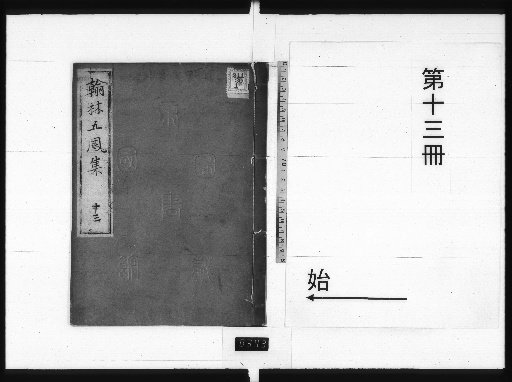 翰林五鳳集
十三
第十三冊
始